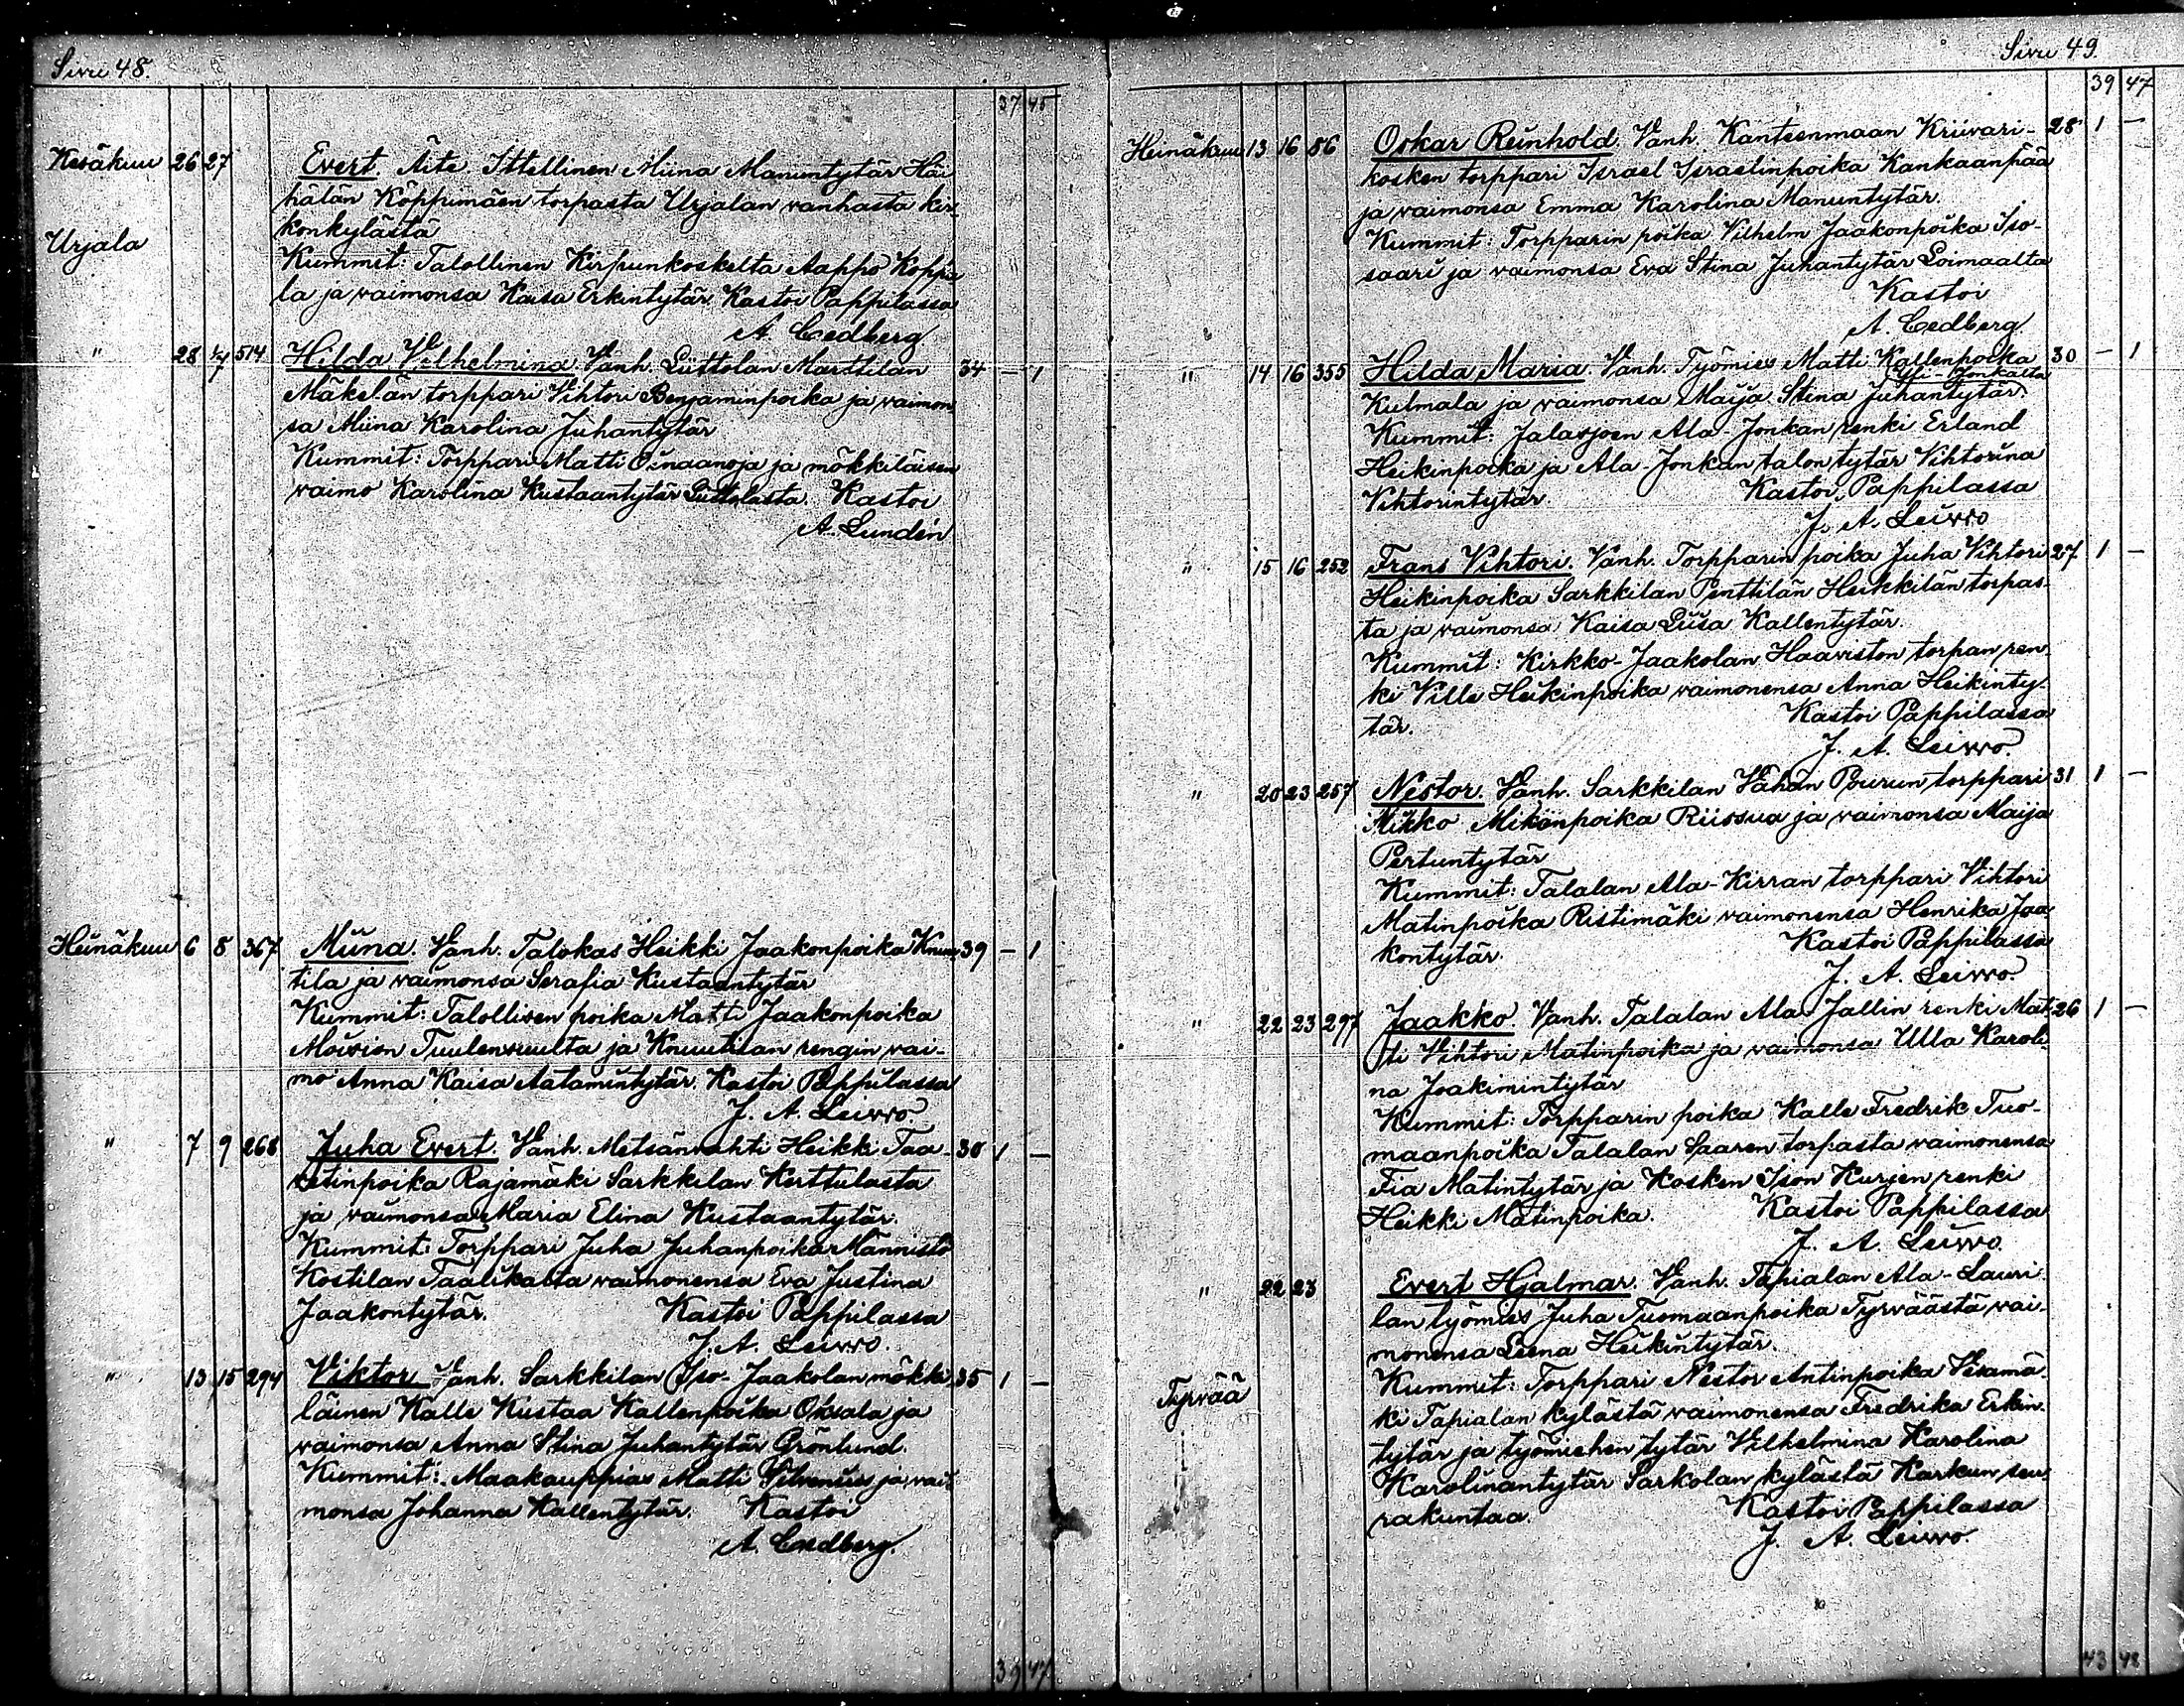 Sivu 48.
37 45
Kesäkuu 26 27 Evert. Äite. Ittellinen Miina Manuntytär Hai
hälän Köppimäen torpasta Urjalan vanhasta kir-
konkylästä
Urjala
Kummit: Talollinen Kirpunkoskelta Aappo Koppa
la ja vaimonsa Kaisa Erkintytär. Kastoi Pappilassa
A. Cedberg
" 28 1/7 514 Hilda Vilhelmina. Vanh. Liittolan Marttilan 34 — 1
Mäkelän torppari Vihtori Benjaminpoika ja vaimon
sa Miina Karolina Juhantytär
Kummit: Torppari Matti Oinaanoja ja mökkiläisen
vaimo Karolina Kustaantytär Liittolasta. Kastoi
A. Lundén
Heinäkuu 6 8 367 Miina. Vanh. Talokas Heikki Jaakonpoika Knuu 39 — 1
tila ja vaimonsa Serafia Kustaantytär
Kummit: Talollisen poika Matti Jaakonpoika
Moision Tuulensuulta ja Knuutilan rengin vai-
mo Anna Kaisa Aatamintytär. Kastoi Pappilassa
J. A. Leivvo
" 7 9 268 Juha Evert. Vanh. Metsänvahti Heikki Taa- 30 1 —
vetinpoika Rajamäki Sarkkilan Kerttulasta
ja vaimonsa Maria Elina Kustaantytär.
Kummit: Torppari Juha Juhanpoika Männistö
Kostilan Taalikalta vaimonensa Eva Justina
Jaakontytär. Kastoi Pappilassa
J. A. Leivvo.
" 13 15 294 Viktor Vanh. Sarkkilan Iso-Jaakolan mökki 35 1 —
läinen Kalle Kustaa Kallenpoika Oksala ja
vaimonsa Anna Stina Juhantytär Grönlund.
Kummit: Maakauppias Matti Silvenius ja vai-
monsa Johanna Kallentytär. Kastoi
A. Cedberg.
39 47
Sivu 49.
39 47
Heinäkuu 13 16 86 Oskar Reinhold. Vanh. Kanteenmaan Kriivari- 28 1 —
kosken torppari Israel Israelinpoika Kankaanpää
ja vaimonsa Emma Karolina Manuntytär.
Kummit: Torpparin poika Vilhelm Jaakonpoika Iso-
saari ja vaimonsa Eva Stina Juhantytär Loimaalta
Kastoi
A. Cedberg.
" 14 16 355 Hilda Maria. Vanh. Työmies Matti Kallenpoika 30 — 1
Yli-Jonkalta
Kulmala ja vaimonsa Maija Stina Juhantytär.
Kummit: Jalasjoen Ala-Jonkan renki Erland
Heikinpoika ja Ala-Jonkan talon tytär Vihtorina
Vihtorintytär. Kastoi Pappilassa
J. A. Leivvo
" 15 16 252 Frans Vihtori. Vanh. Torpparin poika Juha Vihtori 27 1 —
Heikinpoika Sarkkilan Penttilän Heikkilän torpas-
ta ja vaimonsa Kaisa Liisa Kallentytär.
Kummit: Kirkko-Jaakolan Haaviston torpan ren-
ki Ville Heikinpoika vaimonensa Anna Heikinty-
tär. Kastoi Pappilassa
J. A. Leivvo.
" 20 23 257 Nestor. Vanh. Sarkkilan Vähän Pourun torppari 31 1 —
Mikko Mikonpoika Riissua ja vaimonsa Maija
Pertuntytär
Kummit: Talalan Ala-Kirran torppari Vihtori
Matinpoika Ristimäki vaimonensa Henrika Jaa-
kontytär. Kastoi Pappilassa
J. A. Leivvo.
" 22 23 297 Jaakko. Vanh. Talalan Ala-Jallin renki Mat- 26 1 —
ti Vihtori Matinpoika ja vaimonsa Ulla Karoli-
na Joakimintytär
Kummit: Torpparin poika Kalle Fredrik Tuo-
maanpoika Talalan Saaren torpasta vaimonensa
Fia Matintytär ja Kosken Ison Kurjen renki
Heikki Matinpoika. Kastoi Pappilassa
J. A. Leivvo.
" 22 23 Evert Hjalmar. Vanh. Tapialan Ala-Lauri
lan työmies Juha Tuomaanpoika Tyrväästä vai-
monensa Leena Heikintytär.
Tyrvää
Kummit: Torppari Nestor Antinpoika Vesamä-
ki Tapialan kylästä vaimonensa Fredrika Erkin-
tytär ja työmiehen tytär Vilhelmina Karolina
Karolinantytär Sarkolan kylästä Karkun seu-
rakuntaa. Kastoi Pappilassa
J. A. Leivvo.
43 48